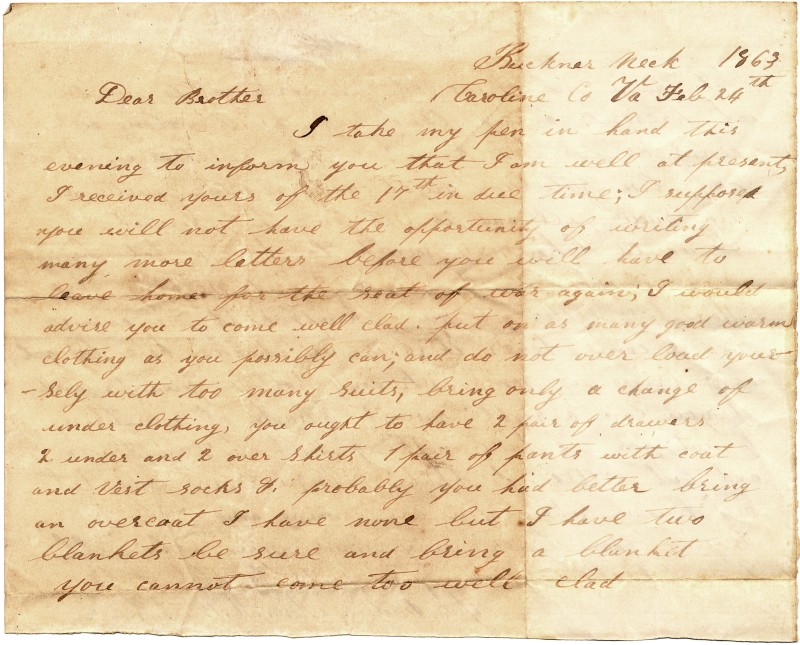 Buckner Neck 1863
Dear Brother Caroline Co Va Feb 24th
I take my pen in hand this
evening to inform you that I am well at present,
I received yours of the 17th in due time; I suppose
you will not have the opportunity of writing
many more letters before you will have to
leave home for the seat of war again; I would
advise you to come well clad. put on as many good warm
clothing as you possibly can; and do not over load your-
-self with too many suits, bring only a change of
under clothing, you ought to have 2 pair of drawers
2 under and 2 over shirts 1 pair of pants with coat
and Vest socks &. probably you had better bring
an overcoat I have none but I have two
blankets be sure and bring a blanket
you cannot come too well clad